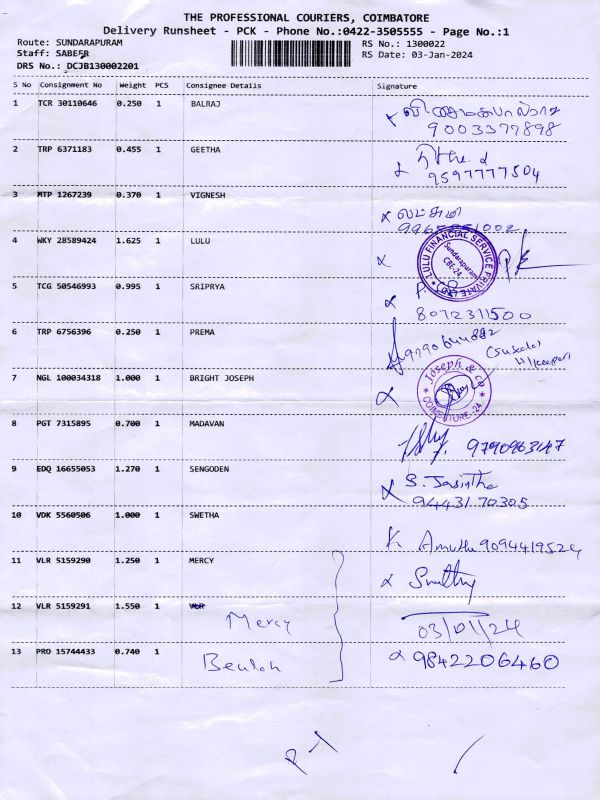 THE PROFESSIONAL COURIERS, COIMBATORE
Delivery Runsheet - PCK - Phone No.:0422-3505555 - Page No.:1
Route: SUNDARAPURAM
Staff: SABEER
DRS No.: DCJB130002201
RS No.: 1300022
RS Date: 03-Jan-2024
S No Consignment No Weight PCS Consignee Details Signature
1 TCR 30110646 0.250 1 BALRAJ
9003377898
2 TRP 6371183 0.455 1 GEETHA
9597777504
3 MTP 1267239 0.370 1 VIGNESH
லட்சுமி
4 WKY 28589424 1.625 1 LULU
LULU FINANCIAL SERVICE PRIVATE LTD
Sundarapuram
CBE-24
5 TCG 50546993 0.995 1 SRIPRYA
8072311500
6 TRP 6756396 0.250 1 PREMA
7 NGL 100034318 1.000 1 BRIGHT JOSEPH
Joseph & Co
COIMBATORE-24
8 PGT 7315895 0.700 1 MADAVAN
9790963147
9 EDQ 16655053 1.270 1 SENGODEN
S. Jasintha
94431 70305
10 VDK 5560506 1.000 1 SWETHA
Amutha 9094419524
11 VLR 5159290 1.250 1 MERCY
12 VLR 5159291 1.550 1 Mercy
03/01/24
13 PRO 15744433 0.740 1 Beulah
9842206460